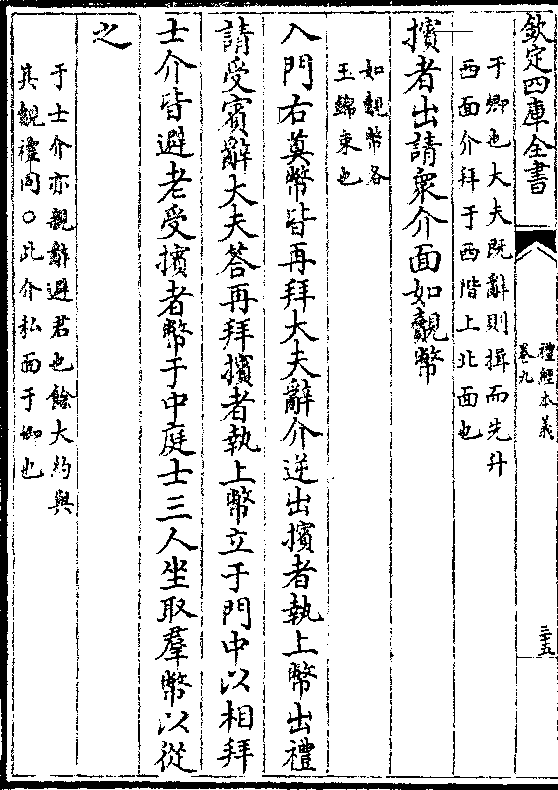 欽定四庫全書
禮經本義
卷九
三十五
于卿也大夫既辭則揖而先升
西面介拜于西階上北面也
擯者出請衆介面如覿幣
如覿幣各
玉錦束也
入門右奠幣皆再拜大夫辭介逆出擯者執上幣出禮
請受賓辭大夫答再拜擯者執上幣立于門中以相拜
士介皆避老受擯者幣于中庭士三人坐取羣幣以從
之
于士介亦親辭避君也餘大約與
其覿禮同○此介私面于卿也